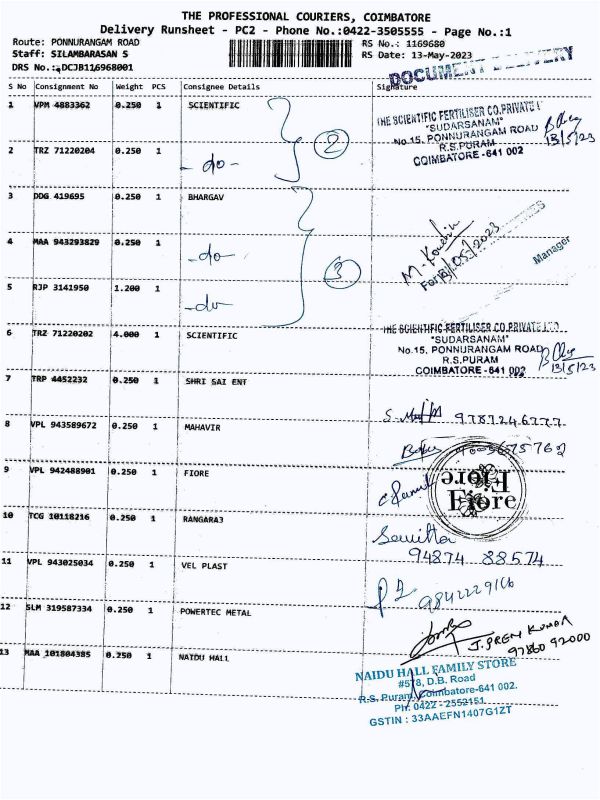 THE PROFESSIONAL COURIERS, COIMBATORE
Delivery Runsheet - PC2 - Phone No.:0422-3505555 - Page No.:1
Route: PONNURANGAM ROAD RS No.: 1169680
Staff: SILAMBARASAN S RS Date: 13-May-2023
DRS No.: DCJB116968001
DOCUMENT DELIVERY
S No Consignment No Weight PCS Consignee Details Signature
1 VPM 4883362 0.250 1 SCIENTIFIC
THE SCIENTIFIC FERTILISER CO.PRIVATE
"SUDARSANAM"
No.15, PONNURANGAM ROAD
R.S.PURAM
COIMBATORE -641 002
13/5/23
2
2 TRZ 71220204 0.250 1 -do-
3 DDG 419695 0.250 1 BHARGAV
4 MAA 943293829 0.250 1 -do-
13/05/2023
Manager
3
5 RJP 3141950 1.200 1 -do-
6 TRZ 71220202 4.000 1 SCIENTIFIC
THE SCIENTIFIC FERTILISER CO.PRIVATE LTD
"SUDARSANAM"
No.15, PONNURANGAM ROAD
R.S.PURAM
COIMBATORE -641 002
13/5/23
7 TRP 4452232 0.250 1 SHRI SAI ENT
9787246777
8 VPL 943589672 0.250 1 MAHAVIR
9 VPL 942488901 0.250 1 FIORE
Fiore
Fiore
10 TCG 10118216 0.250 1 RANGARA3
94874 88574
11 VPL 943025034 0.250 1 VEL PLAST
9842229166
12 SLM 319587334 0.250 1 POWERTEC METAL
J. PREM KUMAR
97860 92000
13 MAA 101804385 0.250 1 NAIDU HALL
NAIDU HALL FAMILY STORE
#578, D.B. Road
R.S. Puram, Coimbatore-641 002.
Ph: 0422 - 2552151
GSTIN : 33AAEFN1407G1ZT